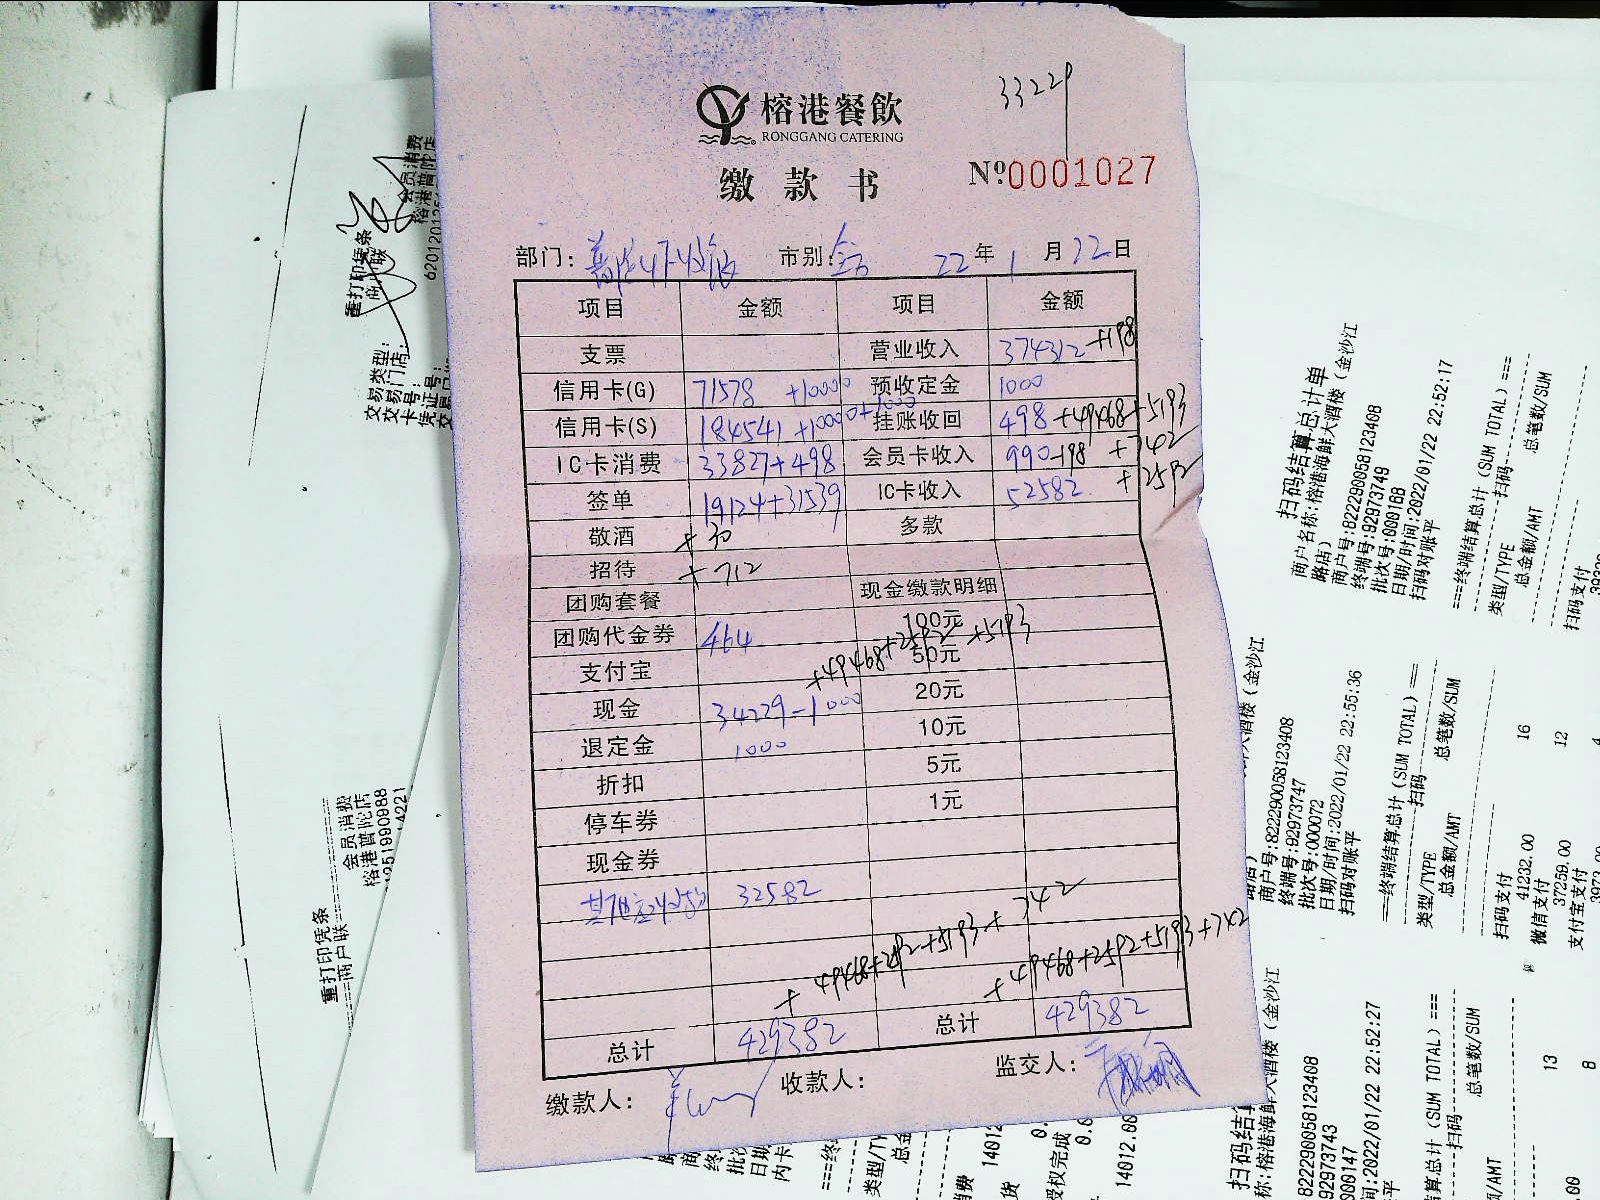 33229
榕港餐飲
RONGGANG CATERING
缴款书
№0001027
部门: 市别: 22年1月22日
项目 金额 项目 金额
支票 营业收入 374312+198
信用卡(G) 71578 +10000 预收定金 1000
信用卡(S) 184541+10000+1000 挂账收回 498+49468+5193
IC卡消费 33827+498 会员卡收入 990-198 +742
签单 19124+31539 IC卡收入 52582 +2592
敬酒 +30 多款
招待 +712
团购套餐 现金缴款明细
团购代金券 464 100元
+49468+2592+5193
支付宝 50元
现金 34229-1000 20元
退定金 1000 10元
折扣 5元
停车券 1元
现金券
32582
+49468+2592+5193+742
+49468+2592+5193+742
总计 429382 总计 429382
缴款人: 收款人: 监交人:
重打印凭条
会员消费
榕港普陀店
交易类型:
交易门店:
卡号:
凭证号:
重打印凭条
商户联
会员消费
榕港普陀店
扫码结算总计单
商户名称:榕港海鲜大酒楼(金沙江
路店)
商户号:822290058123408
终端号:92973749
批次号:000168
日期/时间:2022/01/22 22:52:17
扫码对账平
===终端结算总计(SUM TOTAL)===
扫码
类型/TYPE 总笔数/SUM
总金额/AMT
扫码支付
大酒楼(金沙江
商户号:822290058123408
终端号:92973747
批次号:000072
日期/时间:2022/01/22 22:55:36
扫码对账平
===终端结算总计(SUM TOTAL)===
扫码
类型/TYPE 总笔数/SUM
总金额/AMT
扫码支付 16
41232.00
微信支付 12
37259.00
支付宝支付 4
3973.00
扫码结算
称:榕港海鲜大酒楼(金沙江
822290058123408
92973743
000147
间:2022/01/22 22:52:27
结算总计(SUM TOTAL)===
扫码
总笔数/SUM
13
8
14012.00